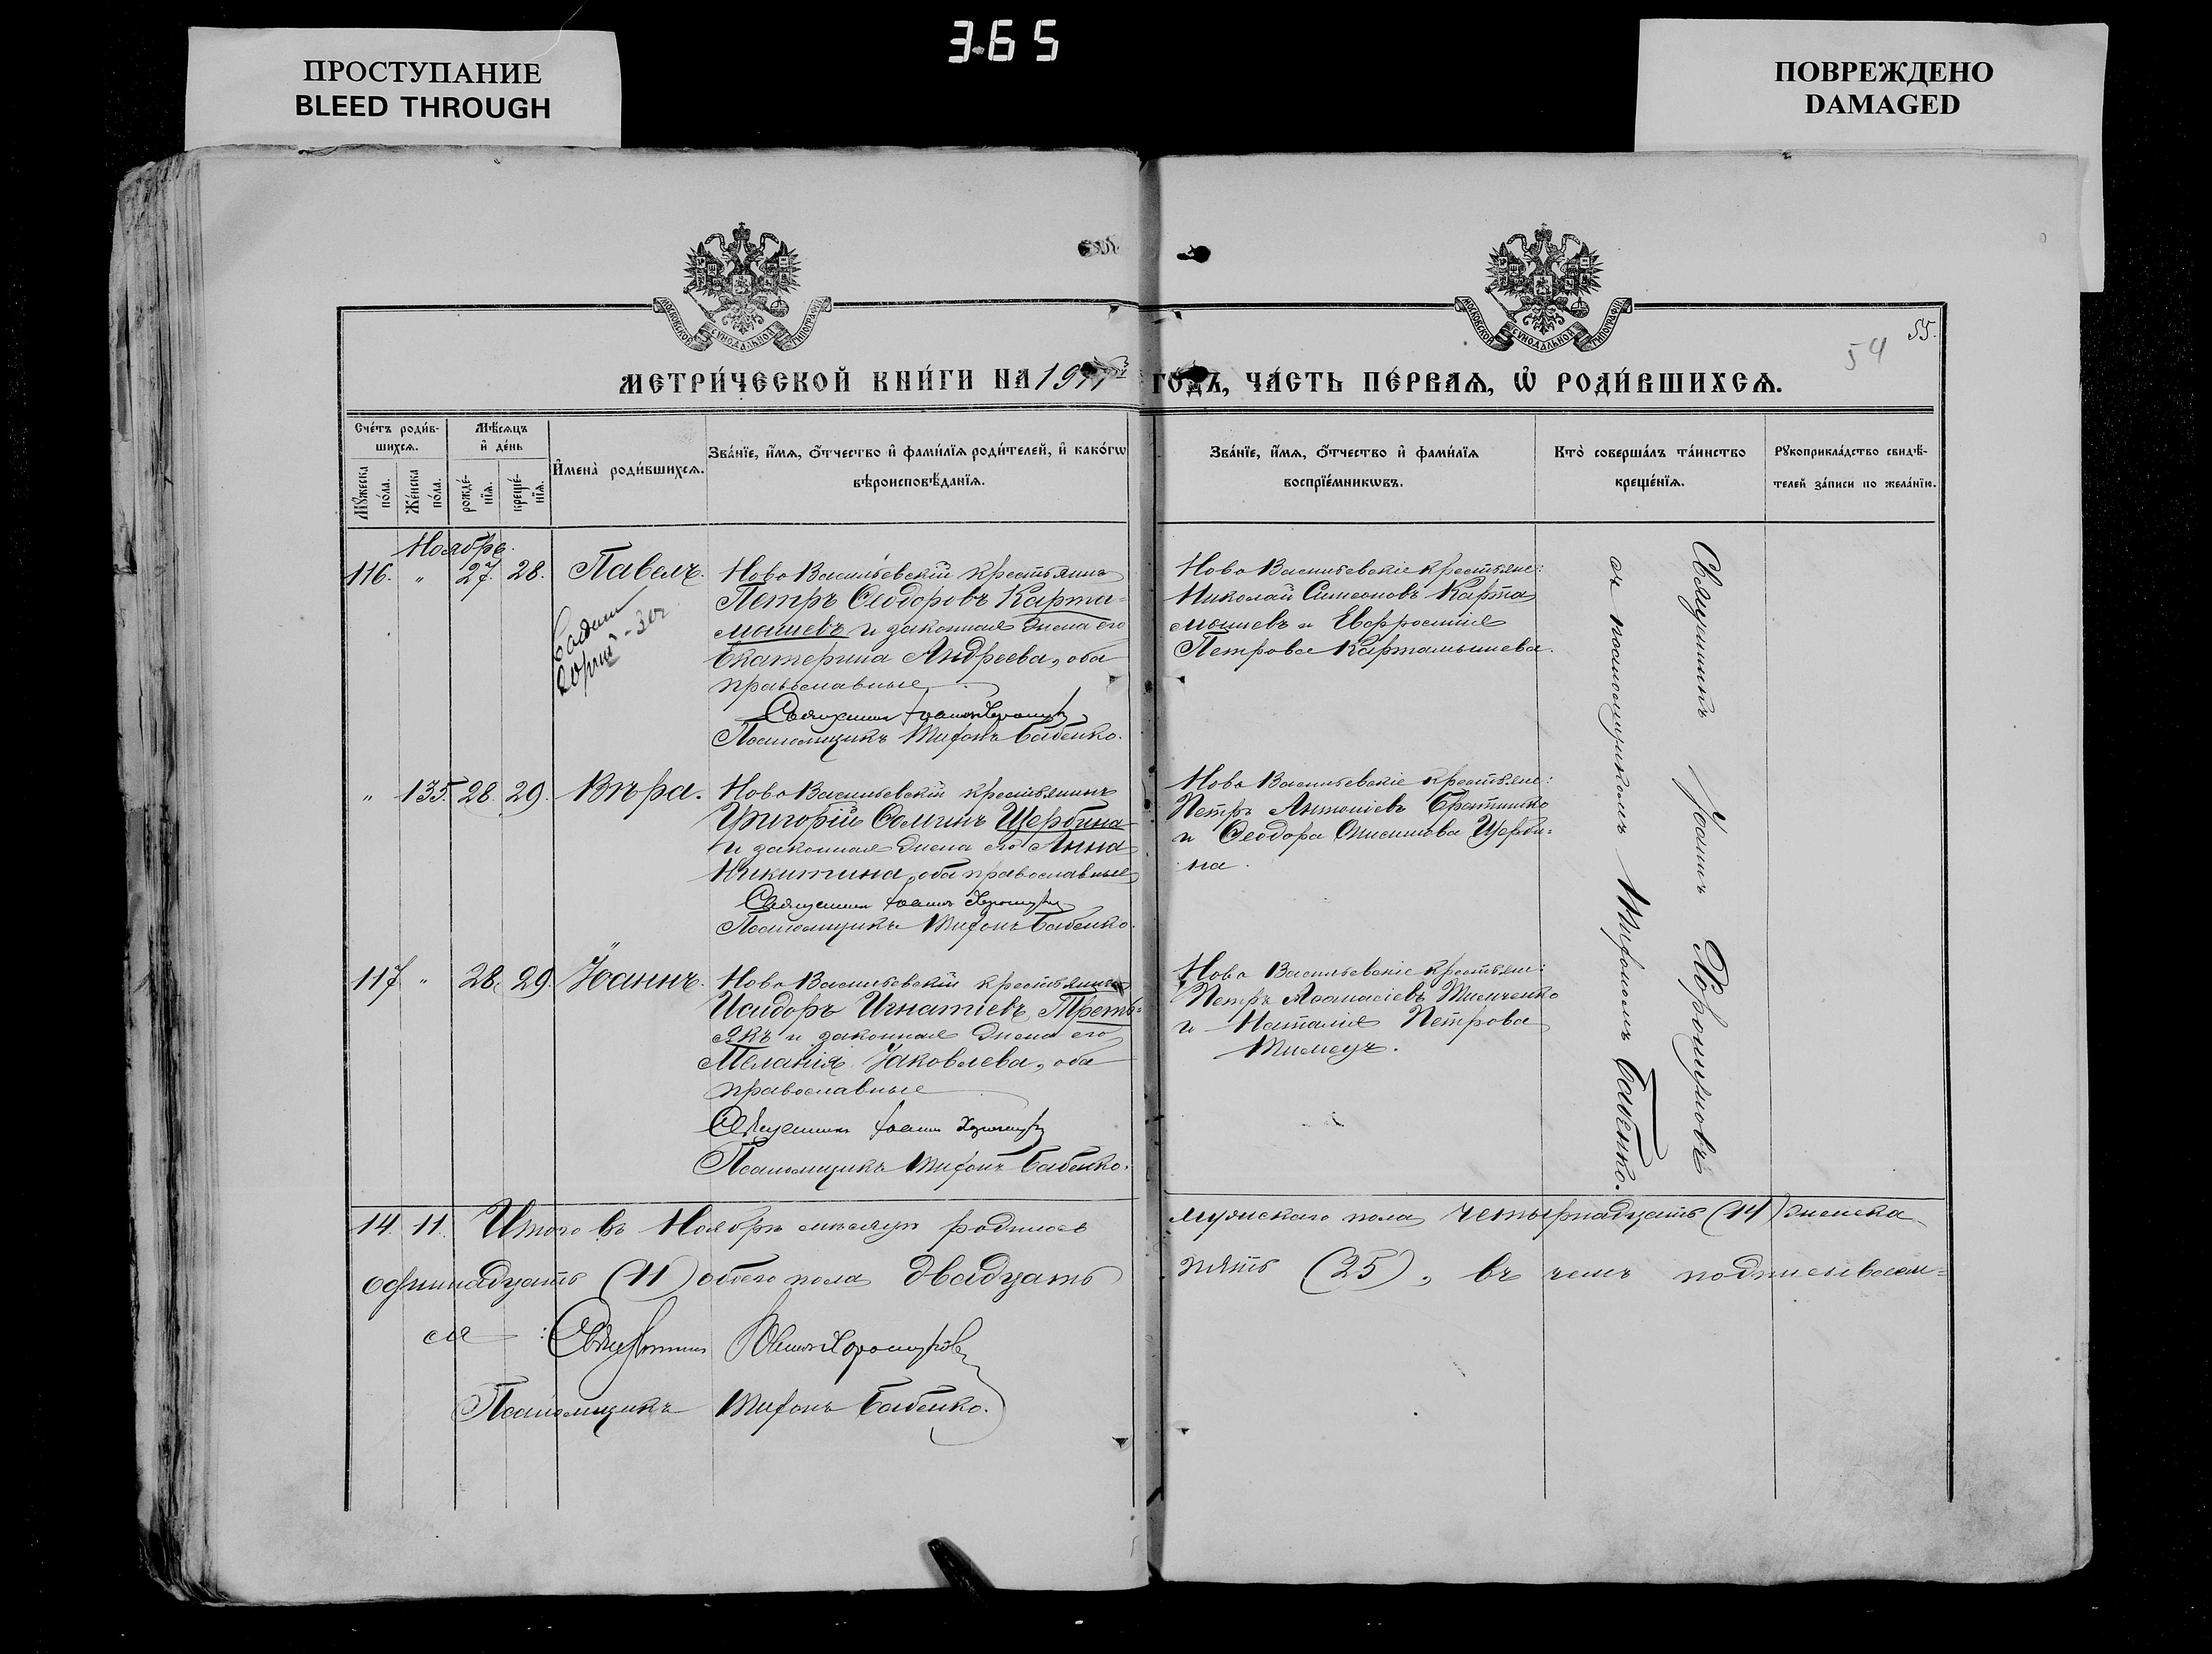 ПРОСТУПАНИЕ
BLEED THROUGH
365
ПОВРЕЖДЕНО
DAMAGED
МОСКОВСКОЙ СѴНОДАЛЬНОЙ ТИПОГРАФІИ
МОСКОВСКОЙ СѴНОДАЛЬНОЙ ТИПОГРАФІИ
55.
54
МЕТРИ́ЧЕСКОЙ КНИ́ГИ НА 19 ГО́ДЪ, ЧА́СТЬ ПЕ́РВАѦ, Ѡ҆ РОДИ́ВШИХСѦ.
Сче́тъ роди́в-
шихсѧ.
Мꙋ́жеска
по́ла.
Же́нска
по́ла.
Мѣ́сѧцъ
и҆ де́нь
рожде́-
нїѧ.
креще́-
нїѧ.
И҆мена̀ роди́вшихсѧ.
Зва́нїе, и҆́мѧ, ѻ҆́тчество и҆ фами́лїѧ роди́телей, и҆ како́гѡ
вѣроисповѣ́данїѧ.
Зва́нїе, и҆́мѧ, ѻ҆́тчество и҆ фами́лїѧ
воспрїе́мникѡвъ.
Кто̀ соверша́лъ та́инство
креще́нїѧ.
Рꙋкоприкла́дство свидѣ́-
телей за́писи по жела́нїю.
Ноября.
116. „ 27. 28. Павелъ.
Ново Васильевскій крестьянинъ
Петръ Ѳеодоровъ Карта-
мышевъ и законная жена его
Екатерина Андреева, оба
православные
Священникъ Іоаннъ Хорошуновъ
Псаломщикъ Тифонъ Бабенко.
Ново Васильевскіе крестьяне:
Николай Симеоновъ Карта
мышевъ и Евфросинія
Петрова Картамышева.
Священникъ Іоаннъ Хорошуновъ
съ псаломщикомъ Тифономъ Бабенко.
„ 135. 28. 29. Вѣра.
Ново Васильевскій крестьянинъ
Григорій Ѳоминъ Щербина
и законная жена его Анна
Никитина, оба православные
Священникъ Іоаннъ Хорошуновъ
Псаломщикъ Тифонъ Бабенко.
Ново Васильевскіе крестьяне:
Петръ Антоніевъ
и Ѳеодора Онисимова Щерби-
на.
117 „ 28. 29. Іоаннъ.
Ново Васильевскій крестьянинъ
Исидоръ Игнатіевъ Треть-
якъ и законная жена его
Меланія Іаковлева, оба
православные
Священникъ Іоаннъ Хорошуновъ
Псаломщикъ Тифонъ Бабенко.
Ново Васильевскіе крестьяне:
Петръ Аѳанасіевъ Тимченко
и Наталія Петрова
14. 11. Итого въ Ноябрѣ мѣсяцѣ родилось мужскаго пола четырнадцать (14) женска
одиннадцать (11) обоего пола двадцать пять (25), въ чемъ подписываем-
ся: Священникъ Іоаннъ Хорошуновъ
Псаломщикъ Тифонъ Бабенко.